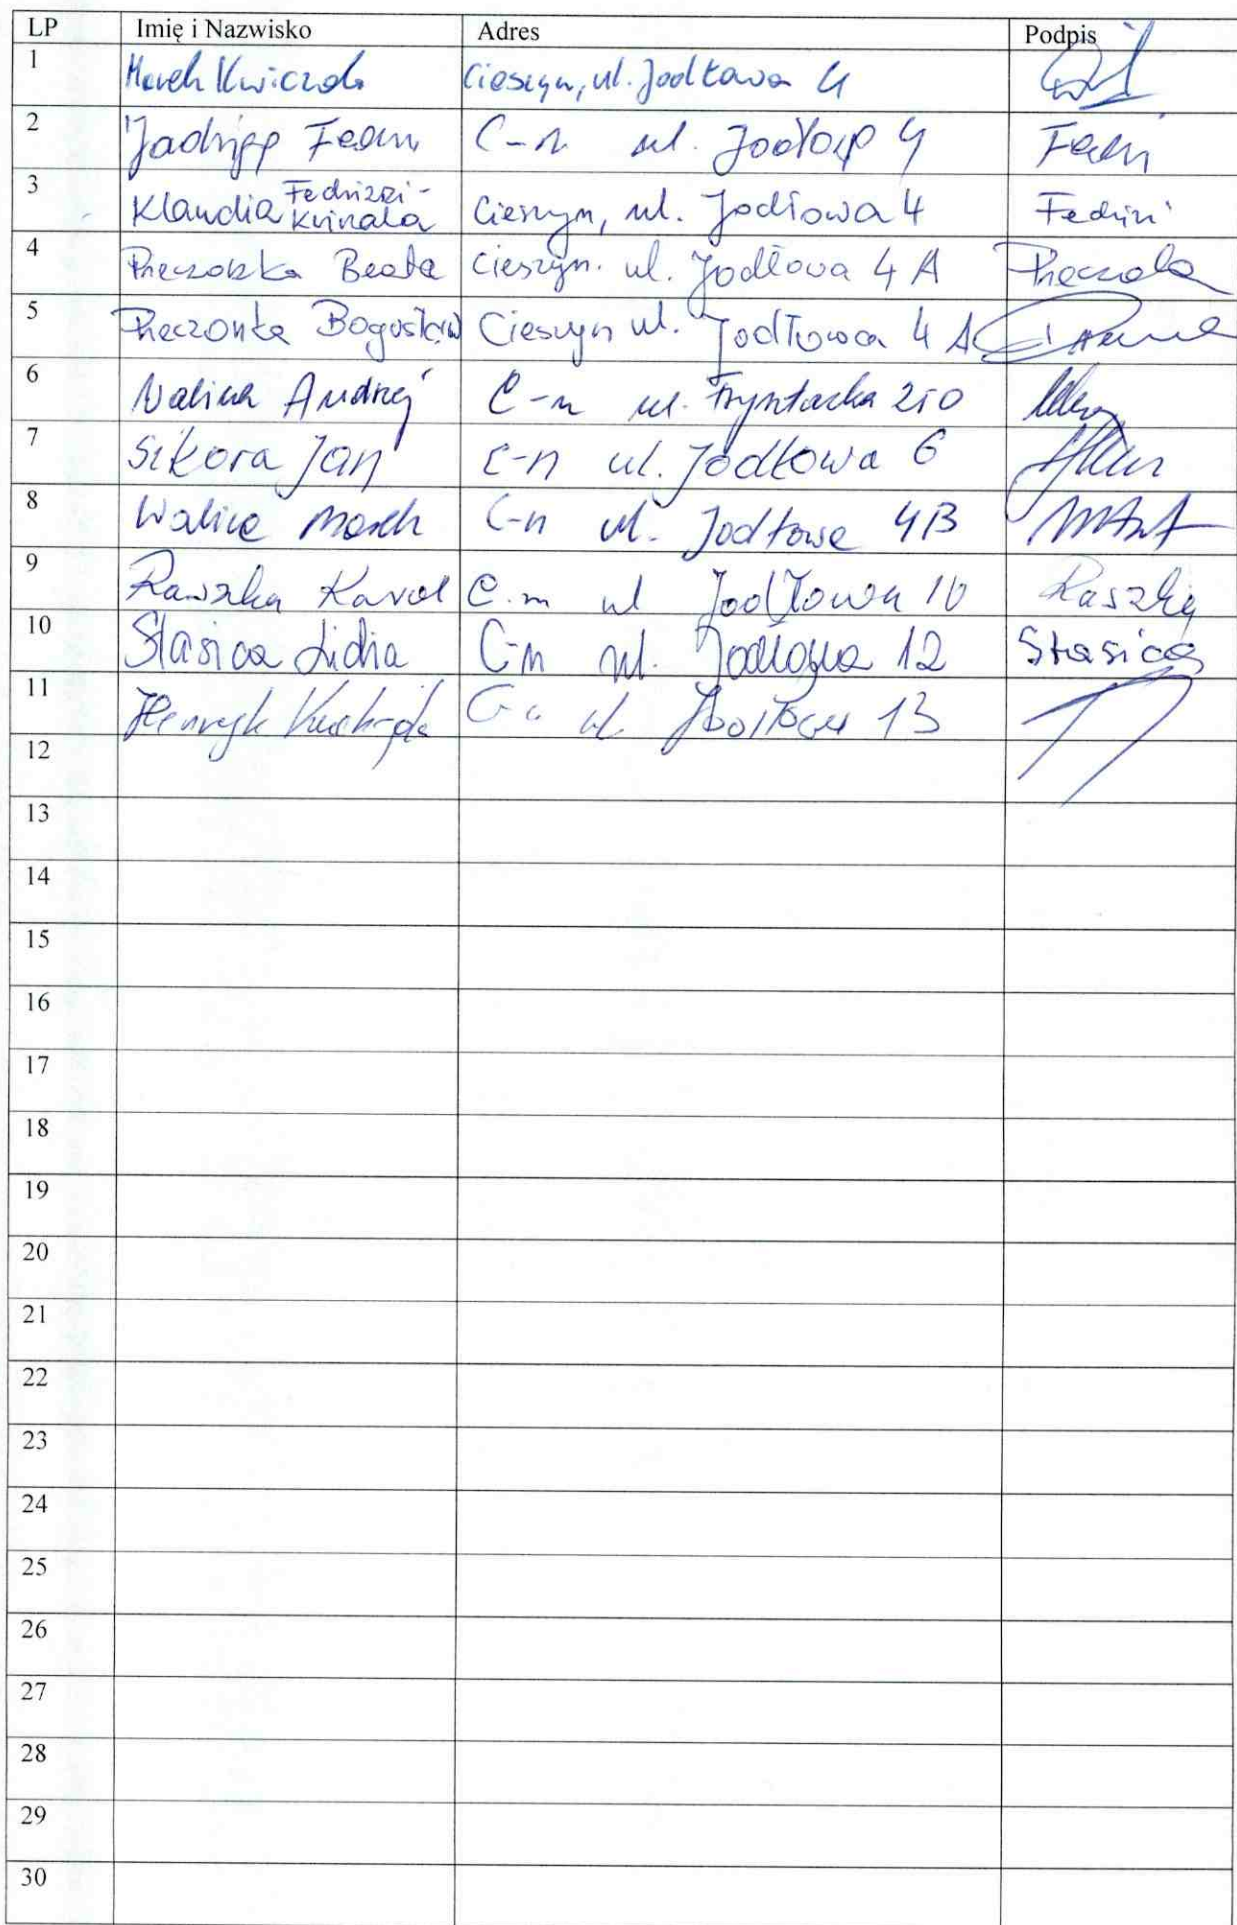 LP Imię i Nazwisko Adres Podpis
1 Marek Kwiczala Cieszyn, ul. Jodłowa 4
2 Jadwiga C-n ul. Jodłowa 4
3 Klaudia Fedrizzi- Cieszyn, ul. Jodłowa 4
4 Pieczonka Beata Cieszyn. ul. Jodłowa 4 A
5 Pieczonka Bogusław Cieszyn ul. Jodłowa 4 A
6 Walica Andrzej C-n ul. Frysztacka 210
7 Sikora Jan C-n ul. Jodłowa 6
8 Walica Marek C-n ul. Jodłowa 4B
9 Raszka Karol C-n ul Jodłowa 10 Raszka
10 Stasica Lidia C-n ul. Jodłowa 12 Stasica
11 Henryk C-n ul. Jodłowa 13
12
13
14
15
16
17
18
19
20
21
22
23
24
25
26
27
28
29
30